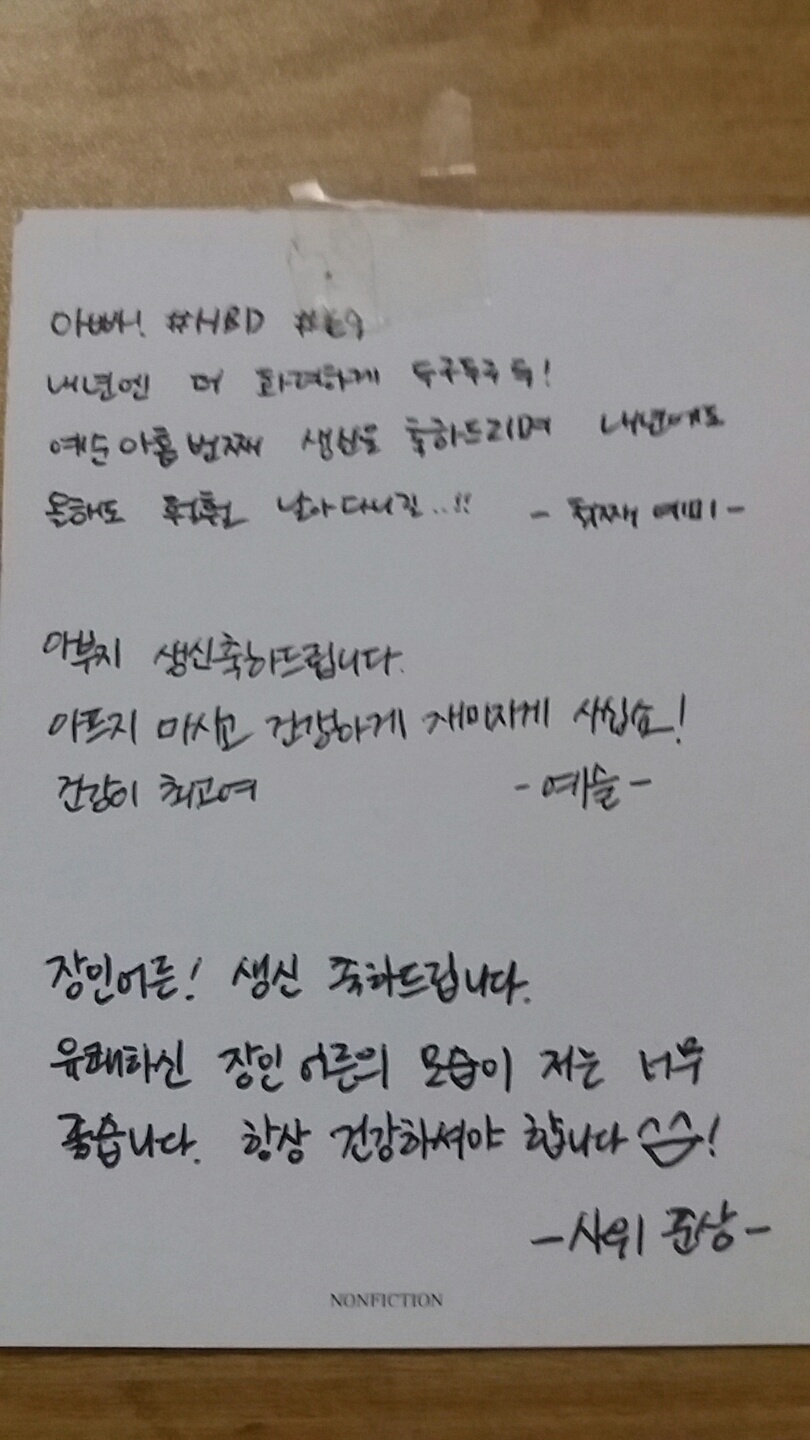 아빠! #HBD #69
내년엔 더 화려하게 두구두구 둑!
예순아홉번째 생신을 축하드리며 내년에도
올해도 훨훨 날아다니길..!! - 첫째 예미 -
아부지 생신축하드립니다.
아프지 마시고 건강하게 재미지게 사십쇼!
건강이 최고여 - 예슬 -
장인어른! 생신 축하드립니다.
유쾌하신 장인어른의 모습이 저는 너무
좋습니다. 항상 건강하셔야 합니다 ^^!
- 사위 준상 -
NONFICTION